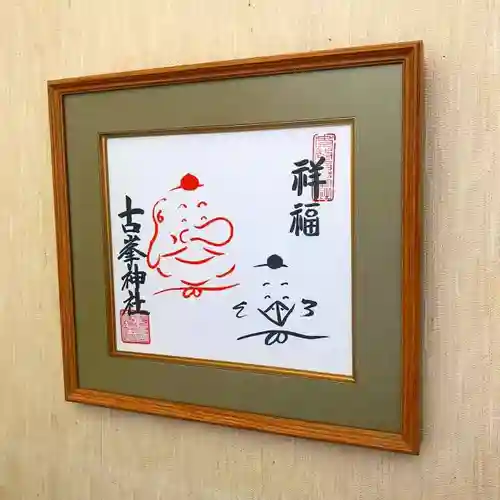 祥福
古峯神社